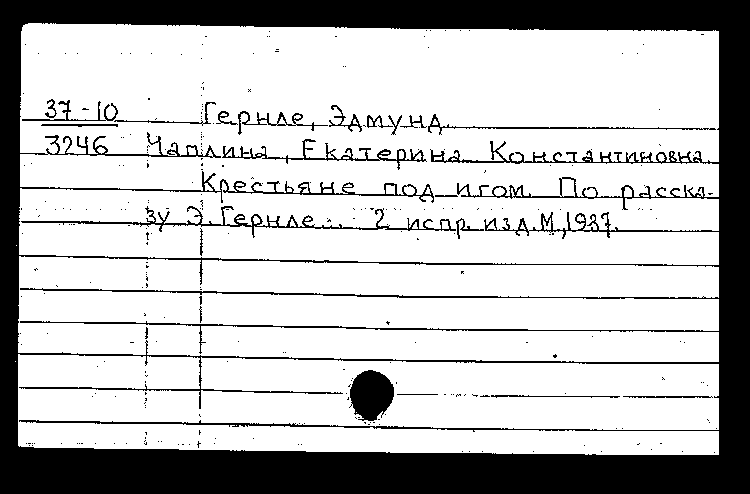 37-10 Гернле, Эдмунд.
3246 Чаплина, Екатерина Константиновна.
Крестьяне под игом. По расска-
зу Э. Гернле... 2 испр. изд. М., 1937.